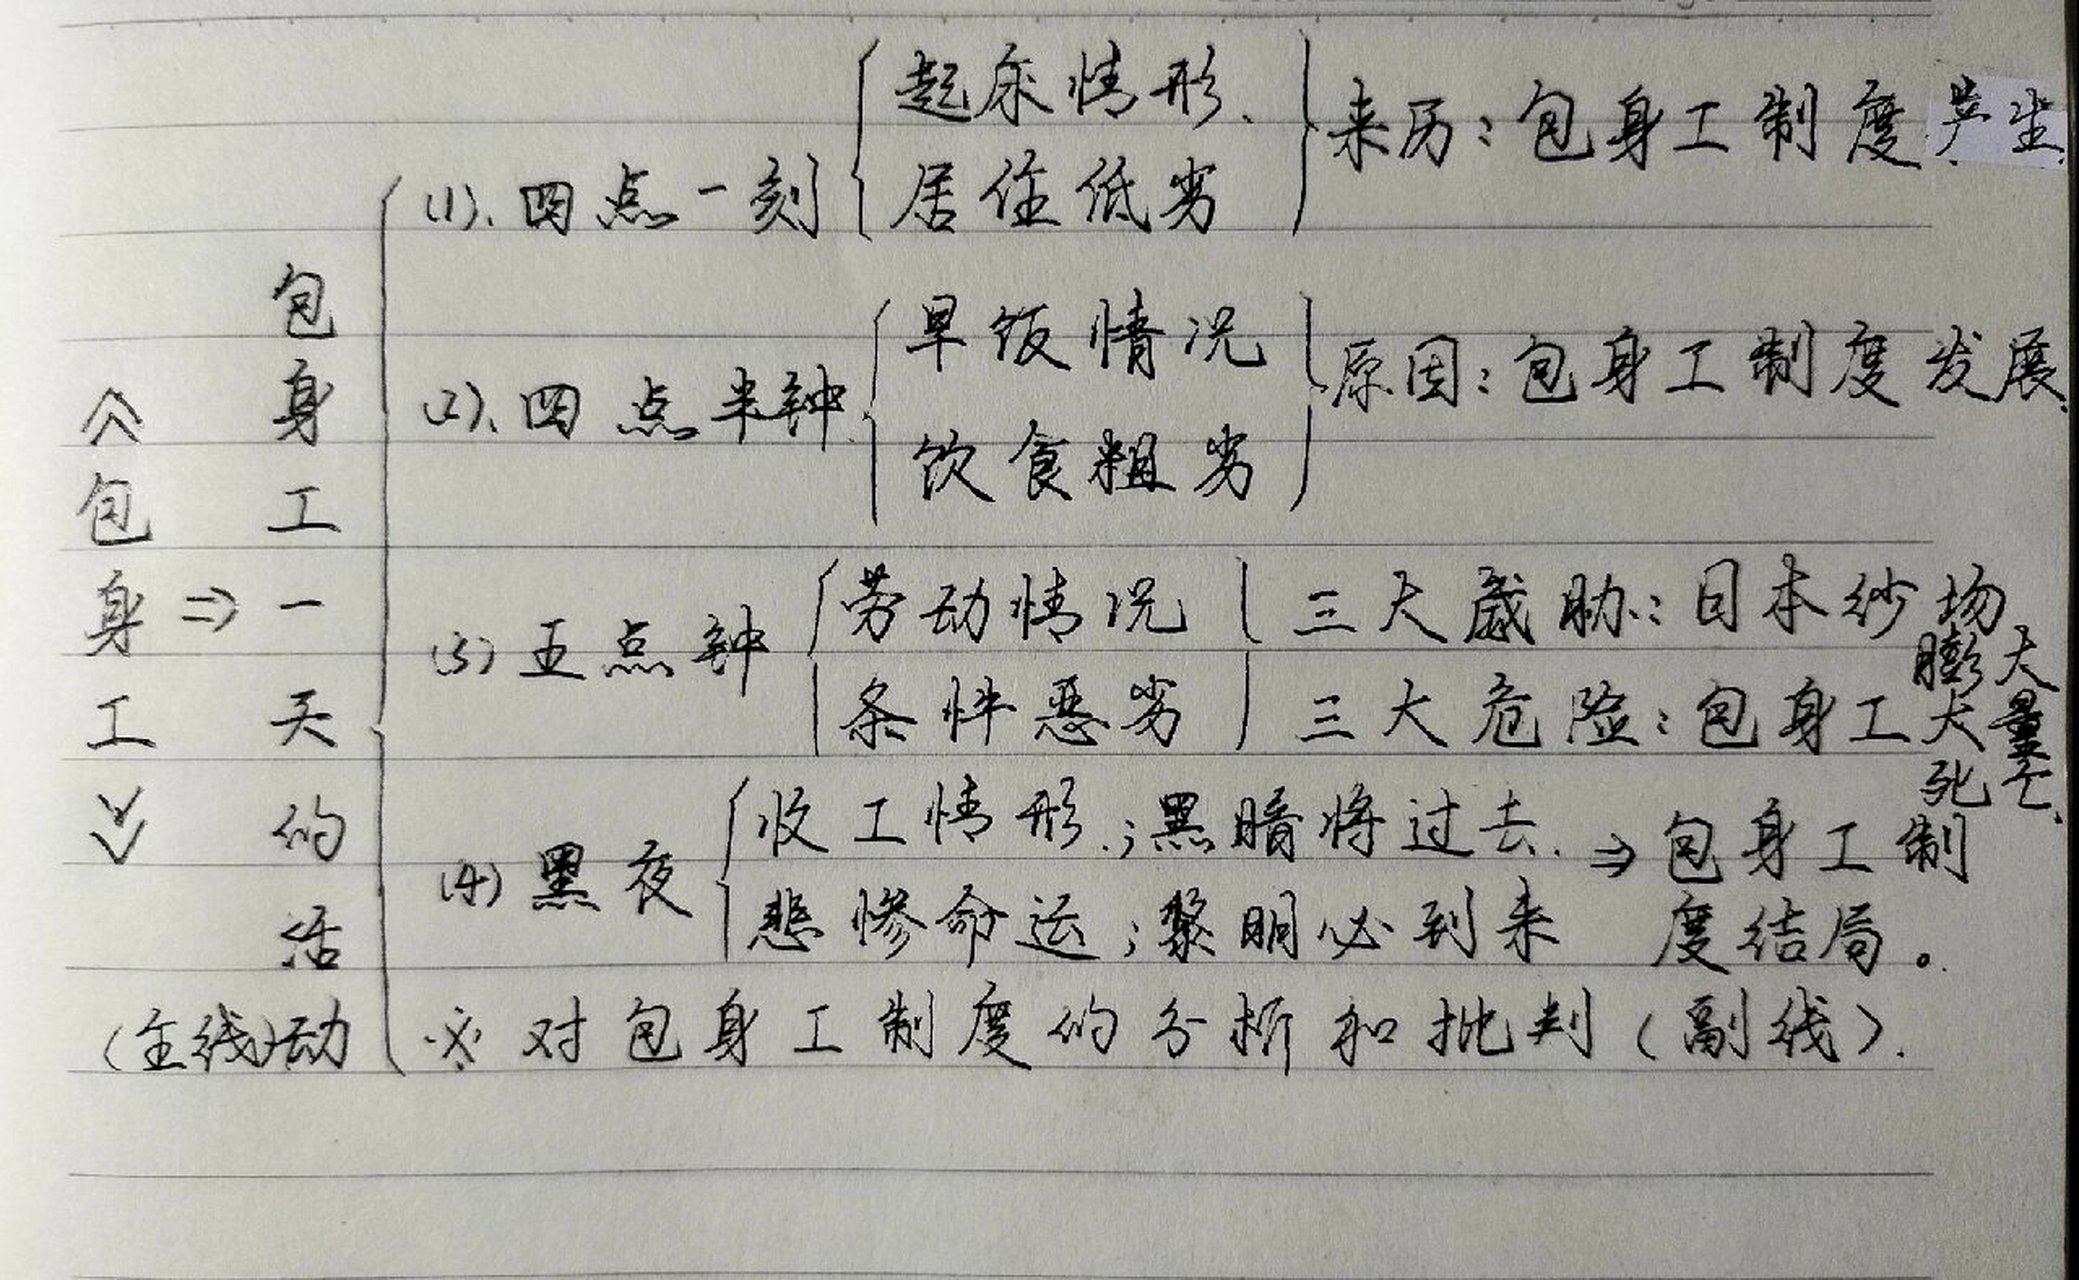 《包身工》
⇒
包身工一天的活动
(主线)
(1).四点一刻
起床情形、
居住低劣
来历：包身工制度产生.
(2).四点半钟.
早饭情况
饮食粗劣
原因：包身工制度发展.
(3)五点钟
劳动情况
条件恶劣
三大威胁：日本纱场膨大
三大危险：包身工大量死亡.
(4)黑夜
收工情形.；黑暗将过去.
悲惨命运；黎明必到来
⇒包身工制
度结局。
※对包身工制度的分析和批判(副线).